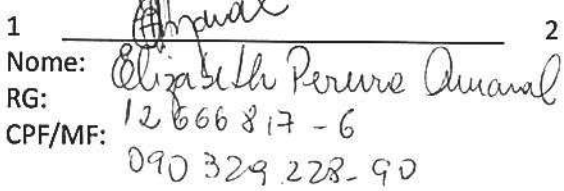 1 Amaral 2
Nome: Elizabeth Pereira Amaral
RG: 12666817-6
CPF/MF: 090 329.228-90